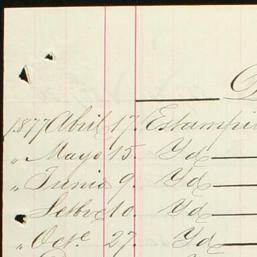 1877 Abril 17. Estampi
" Mayo 15. Yd
" Junio 9. Yd
" Setbre 10. Yd
" Octe 27. Yd